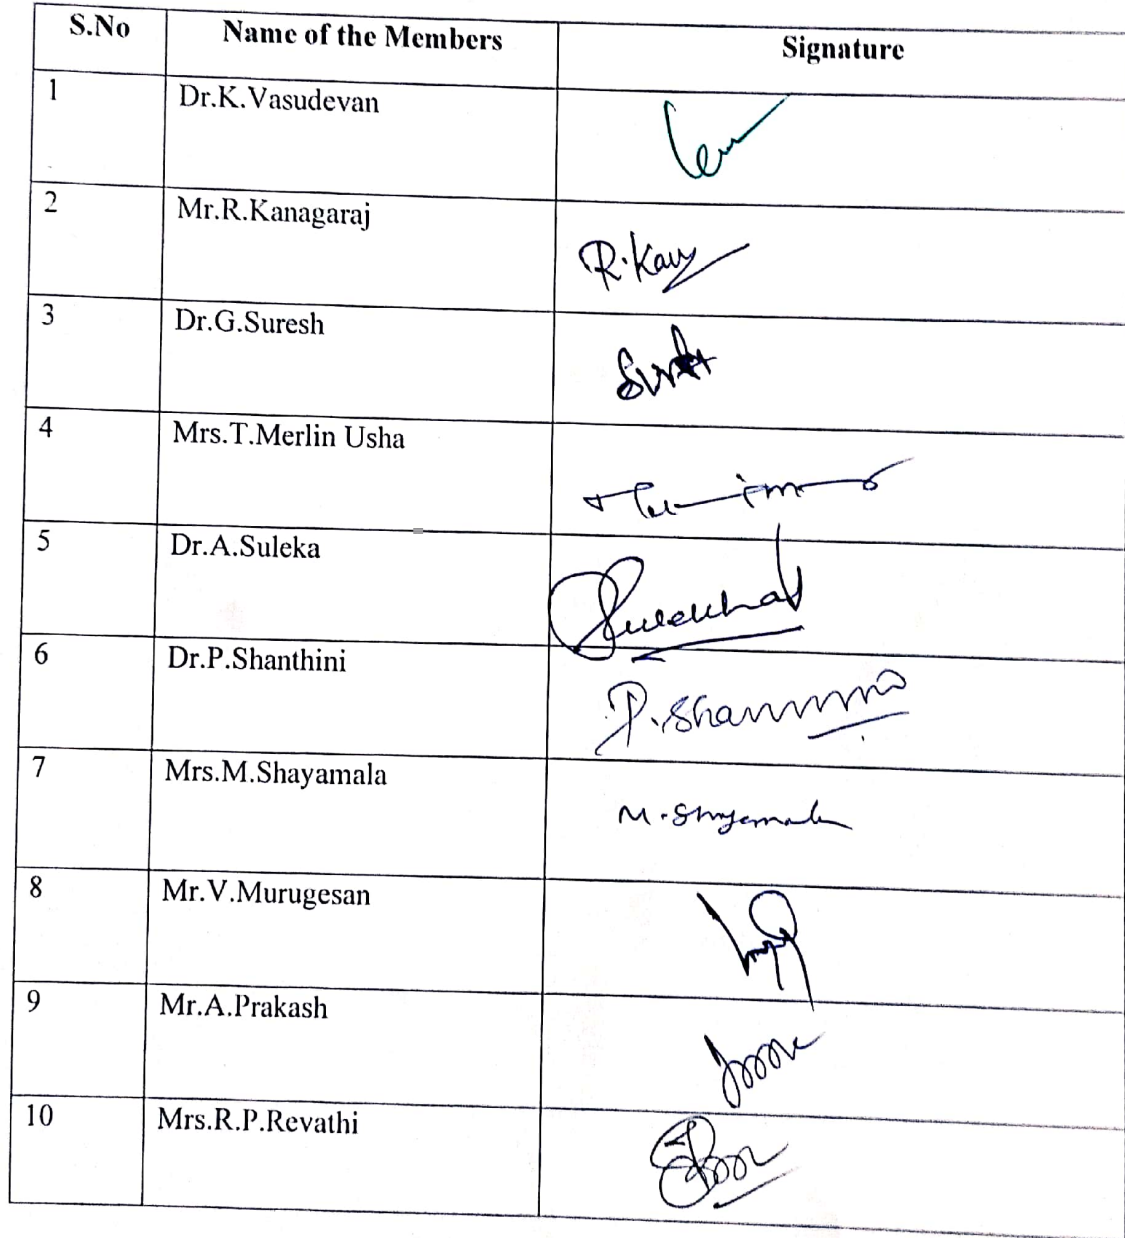 S.No Name of the Members Signature
1 Dr.K.Vasudevan
2 Mr.R.Kanagaraj
R.Kan
3 Dr.G.Suresh
4 Mrs.T.Merlin Usha
5 Dr.A.Suleka
6 Dr.P.Shanthini
7 Mrs.M.Shayamala
M.Shyamala
8 Mr.V.Murugesan
9 Mr.A.Prakash
10 Mrs.R.P.Revathi